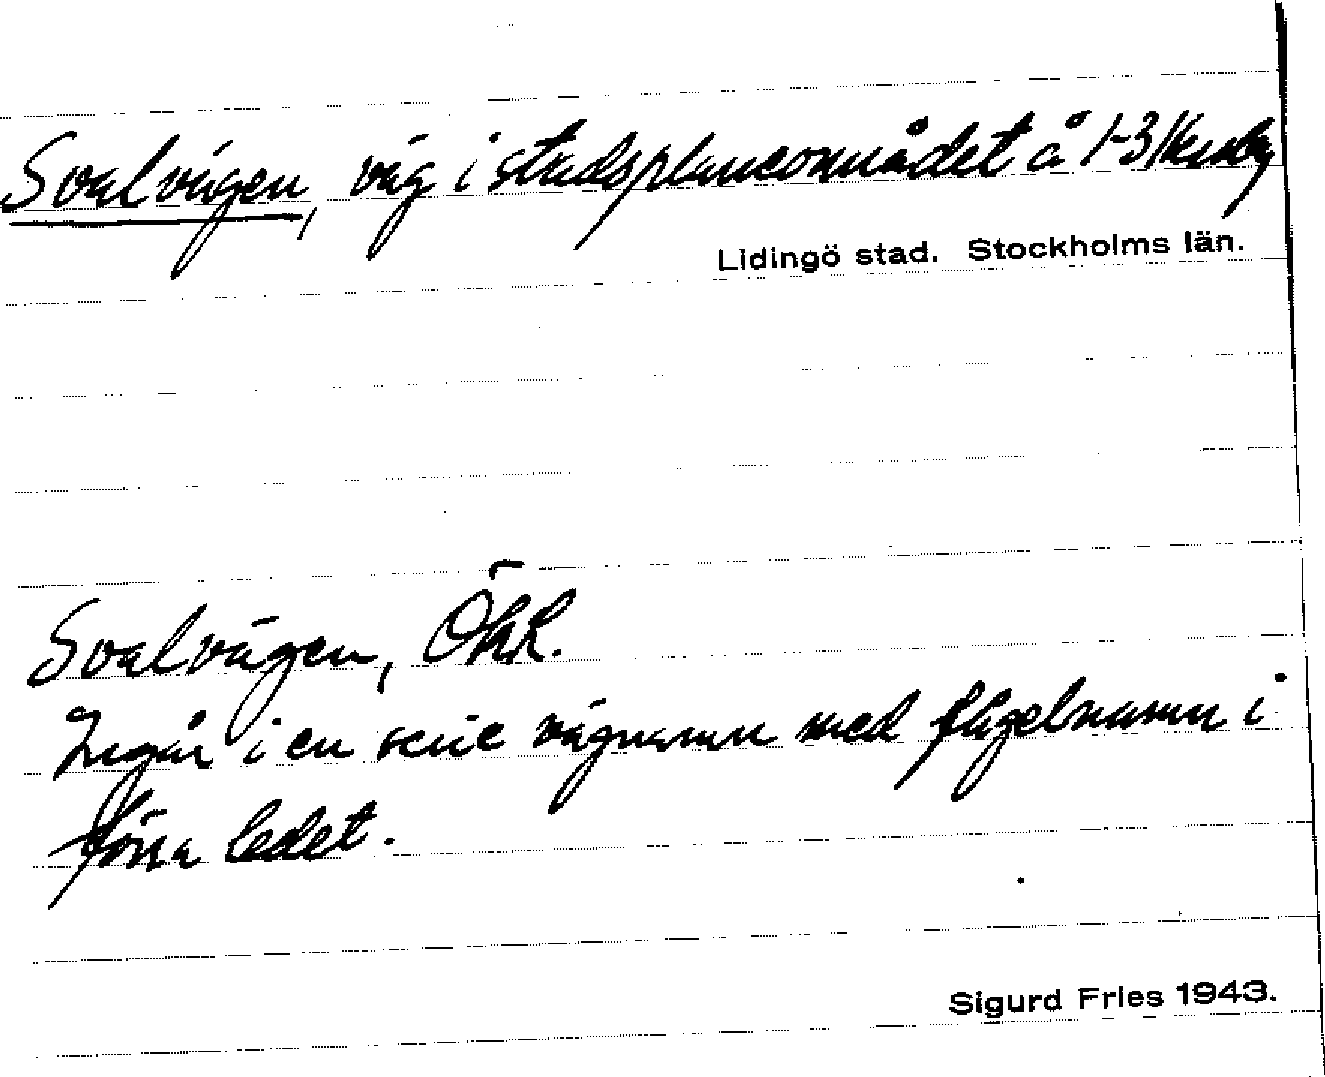 Svalvägen, väg i stadsplaneområdet å 1-3
Lidingö stad. Stockholms län.
Svalvägen, ÖkR.
Ingår i en serie vägnamn med fågelnamn i
förra ledet.
Sigurd Fries 1943.